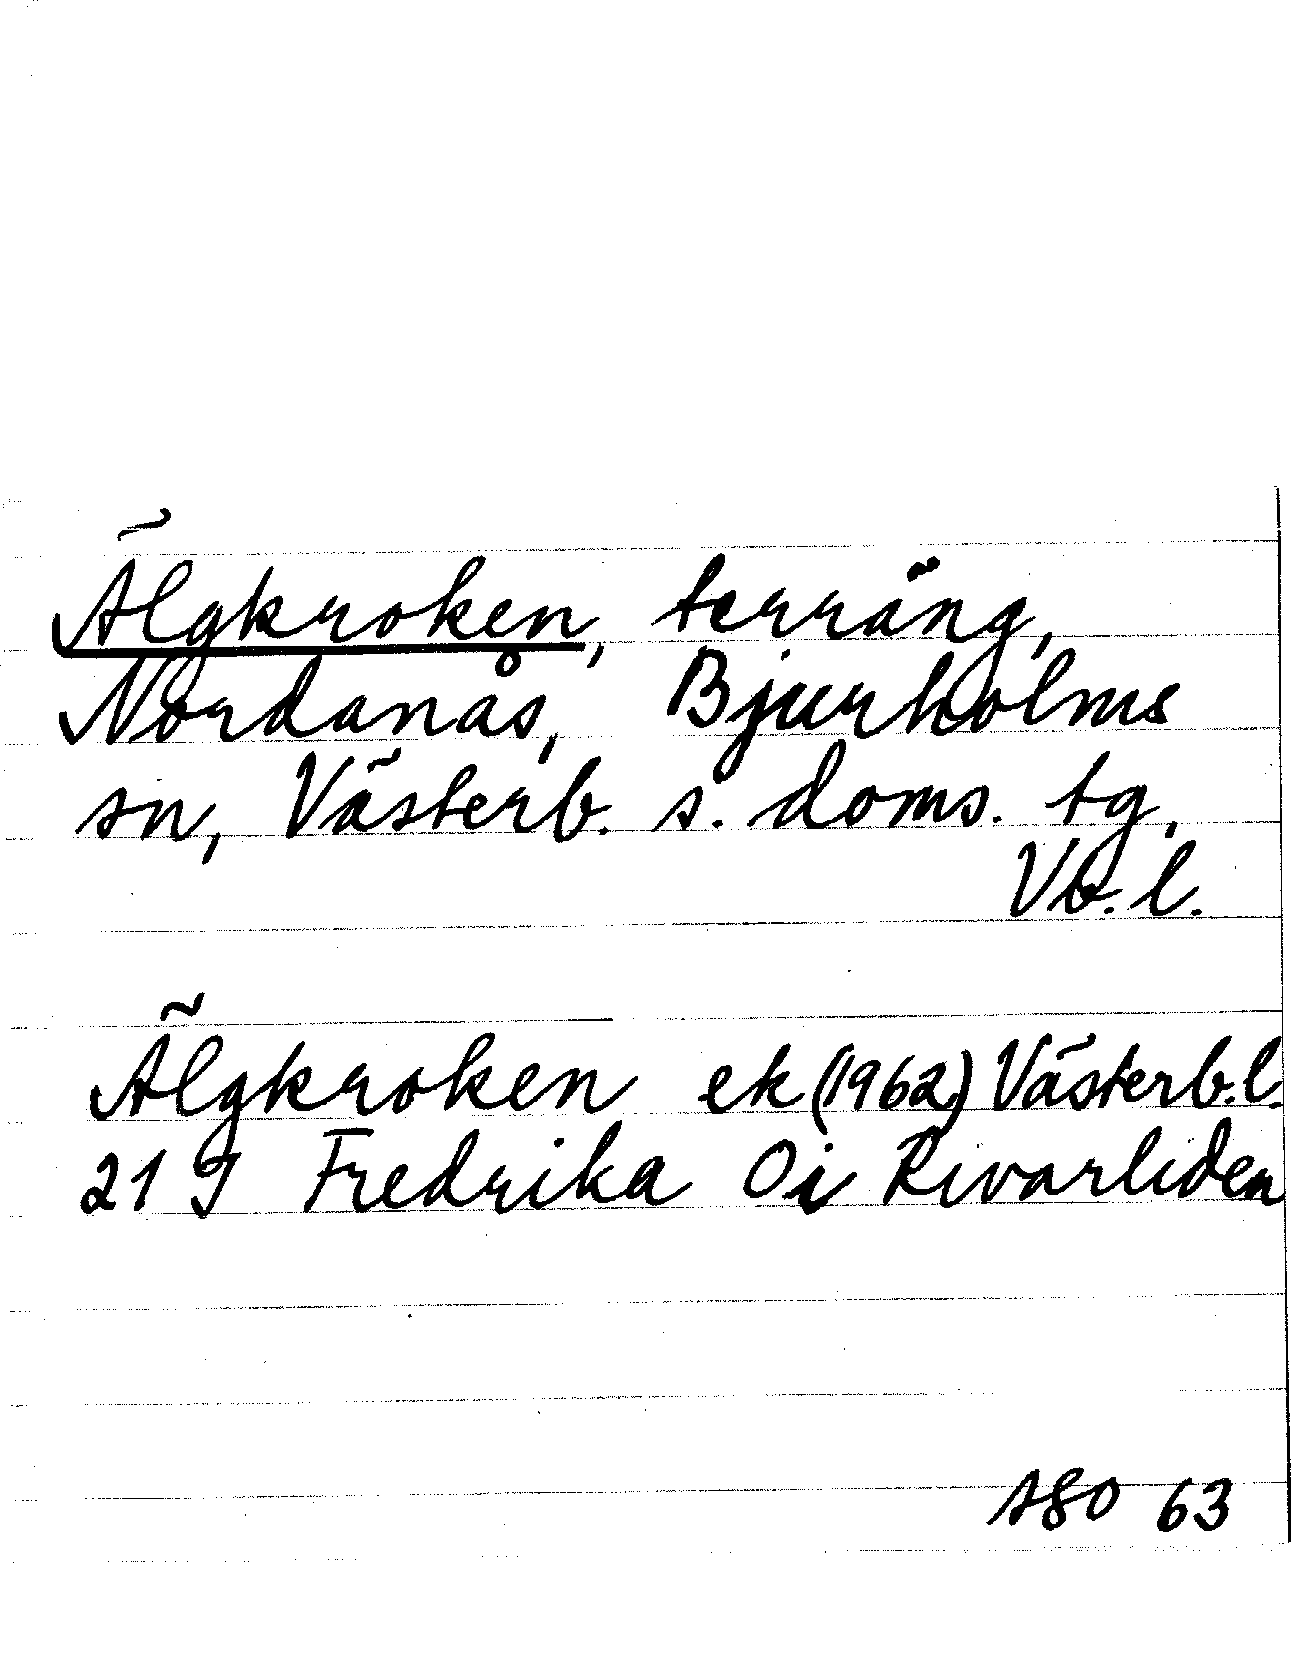 Älgkroken, terräng,
Nordanås, Bjurholms
sn, Västerb. s. doms. tg,
Vb. l.
Älgkroken ek (1962) Västerb. l.
21 J Fredrika 0i Rivarliden
ASO 63